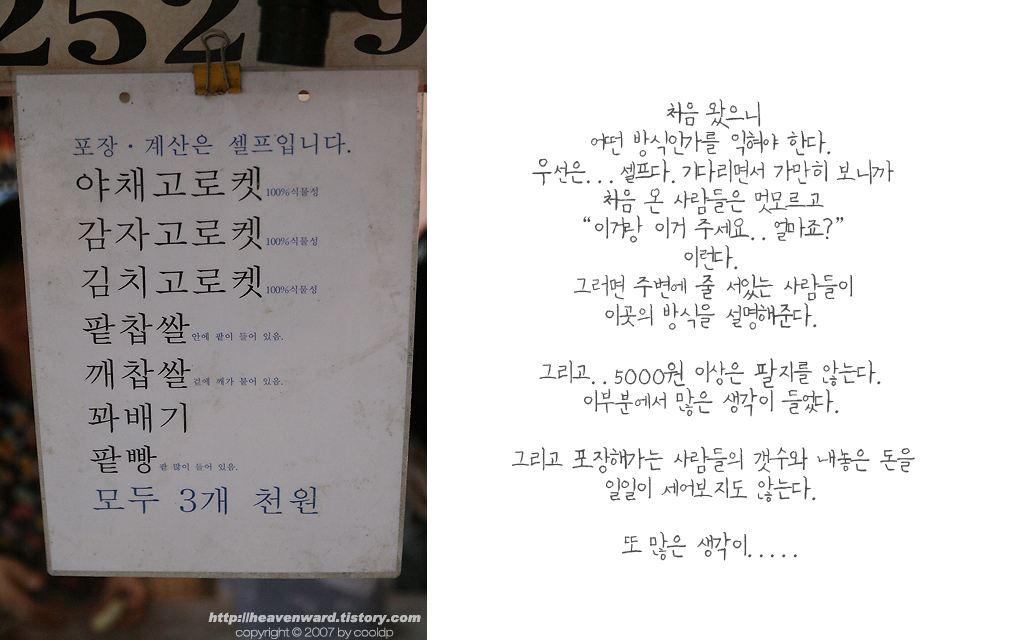 252 9
포장·계산은 셀프입니다.
야채고로켓 100%식물성
감자고로켓 100%식물성
김치고로켓 100%식물성
팥찹쌀 안에 팥이 들어 있음.
깨찹쌀 겉에 깨가 붙어 있음.
꽈배기
팥빵 팥 많이 들어 있음.
모두 3개 천원
http://heavenward.tistory.com
copyright © 2007 by cooldp
처음 왔으니
어떤 방식인가를 익혀야 한다.
우선은... 셀프다. 기다리면서 가만히 보니까
처음 온 사람들은 멋모르고
“이거랑 이거 주세요.. 얼마죠?”
이런다.
그러면 주변에 줄 서있는 사람들이
이곳의 방식을 설명해준다.
그리고..5000원 이상은 팔지를 않는다.
이부분에서 많은 생각이 들었다.
그리고 포장해가는 사람들의 갯수와 내놓은 돈을
일일이 세어보지도 않는다.
또 많은 생각이.....